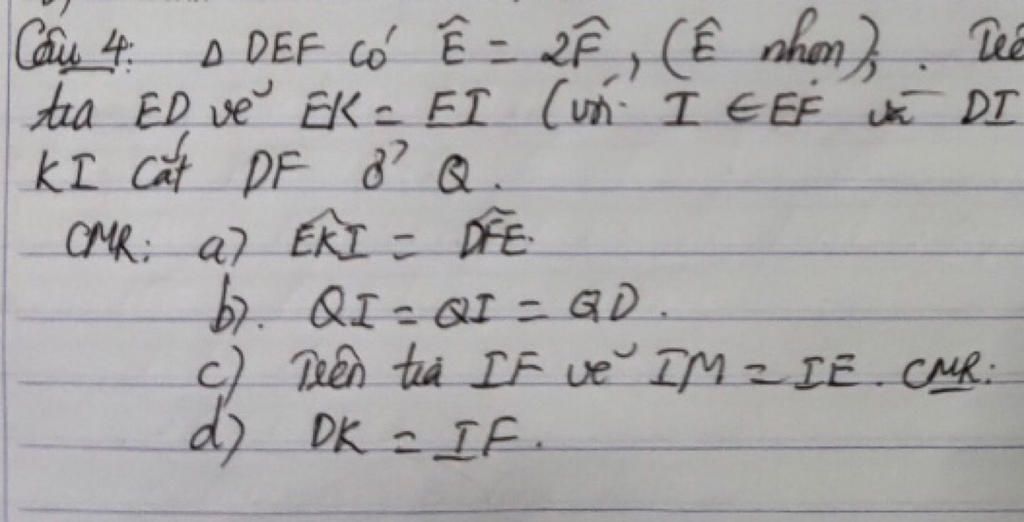 Câu 4: Δ DEF có Ê = 2F̂, (Ê nhọn);.
tia ED vẽ EK = EI (với I ∈ EF và DI
KI cắt DF ở Q.
CMR: a) \widehat{EKI} = \widehat{DFE}.
b). QI = QI = QD.
c) Trên tia IF vẽ IM = IE. CMR:
d) DK = IF.